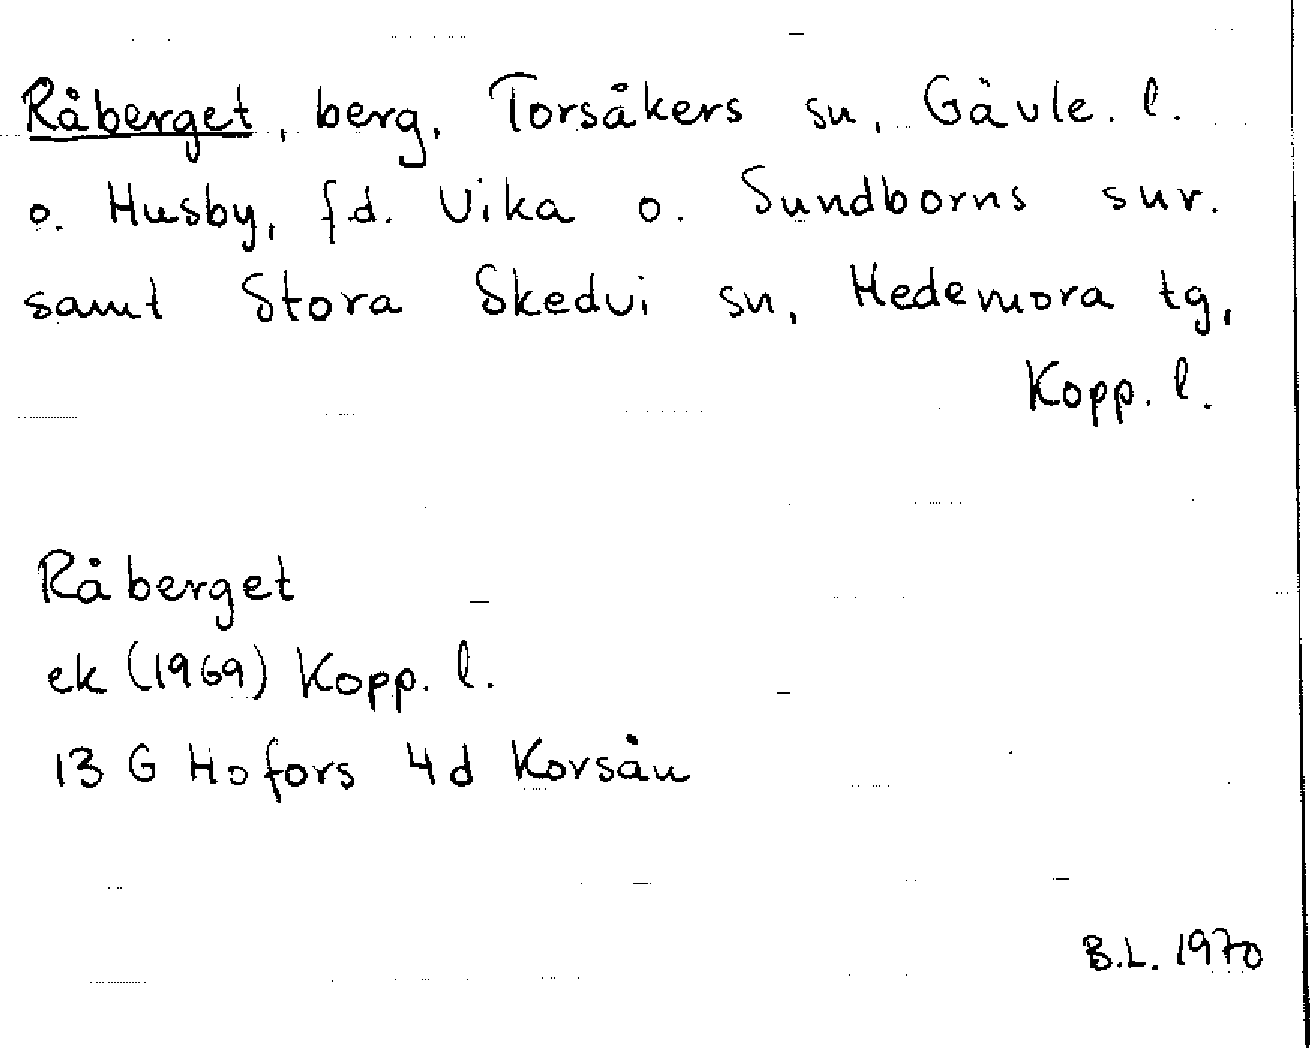 Råberget, berg, Torsåkers sn, Gävle. l.
o. Husby, fd. Vika o. Sundborns snr.
samt Stora Skedvi sn, Hedemora tg,
Kopp. l.
Råberget
ek (1969) Kopp. l.
13 G Hofors 4d Korsån
B.L. 1970